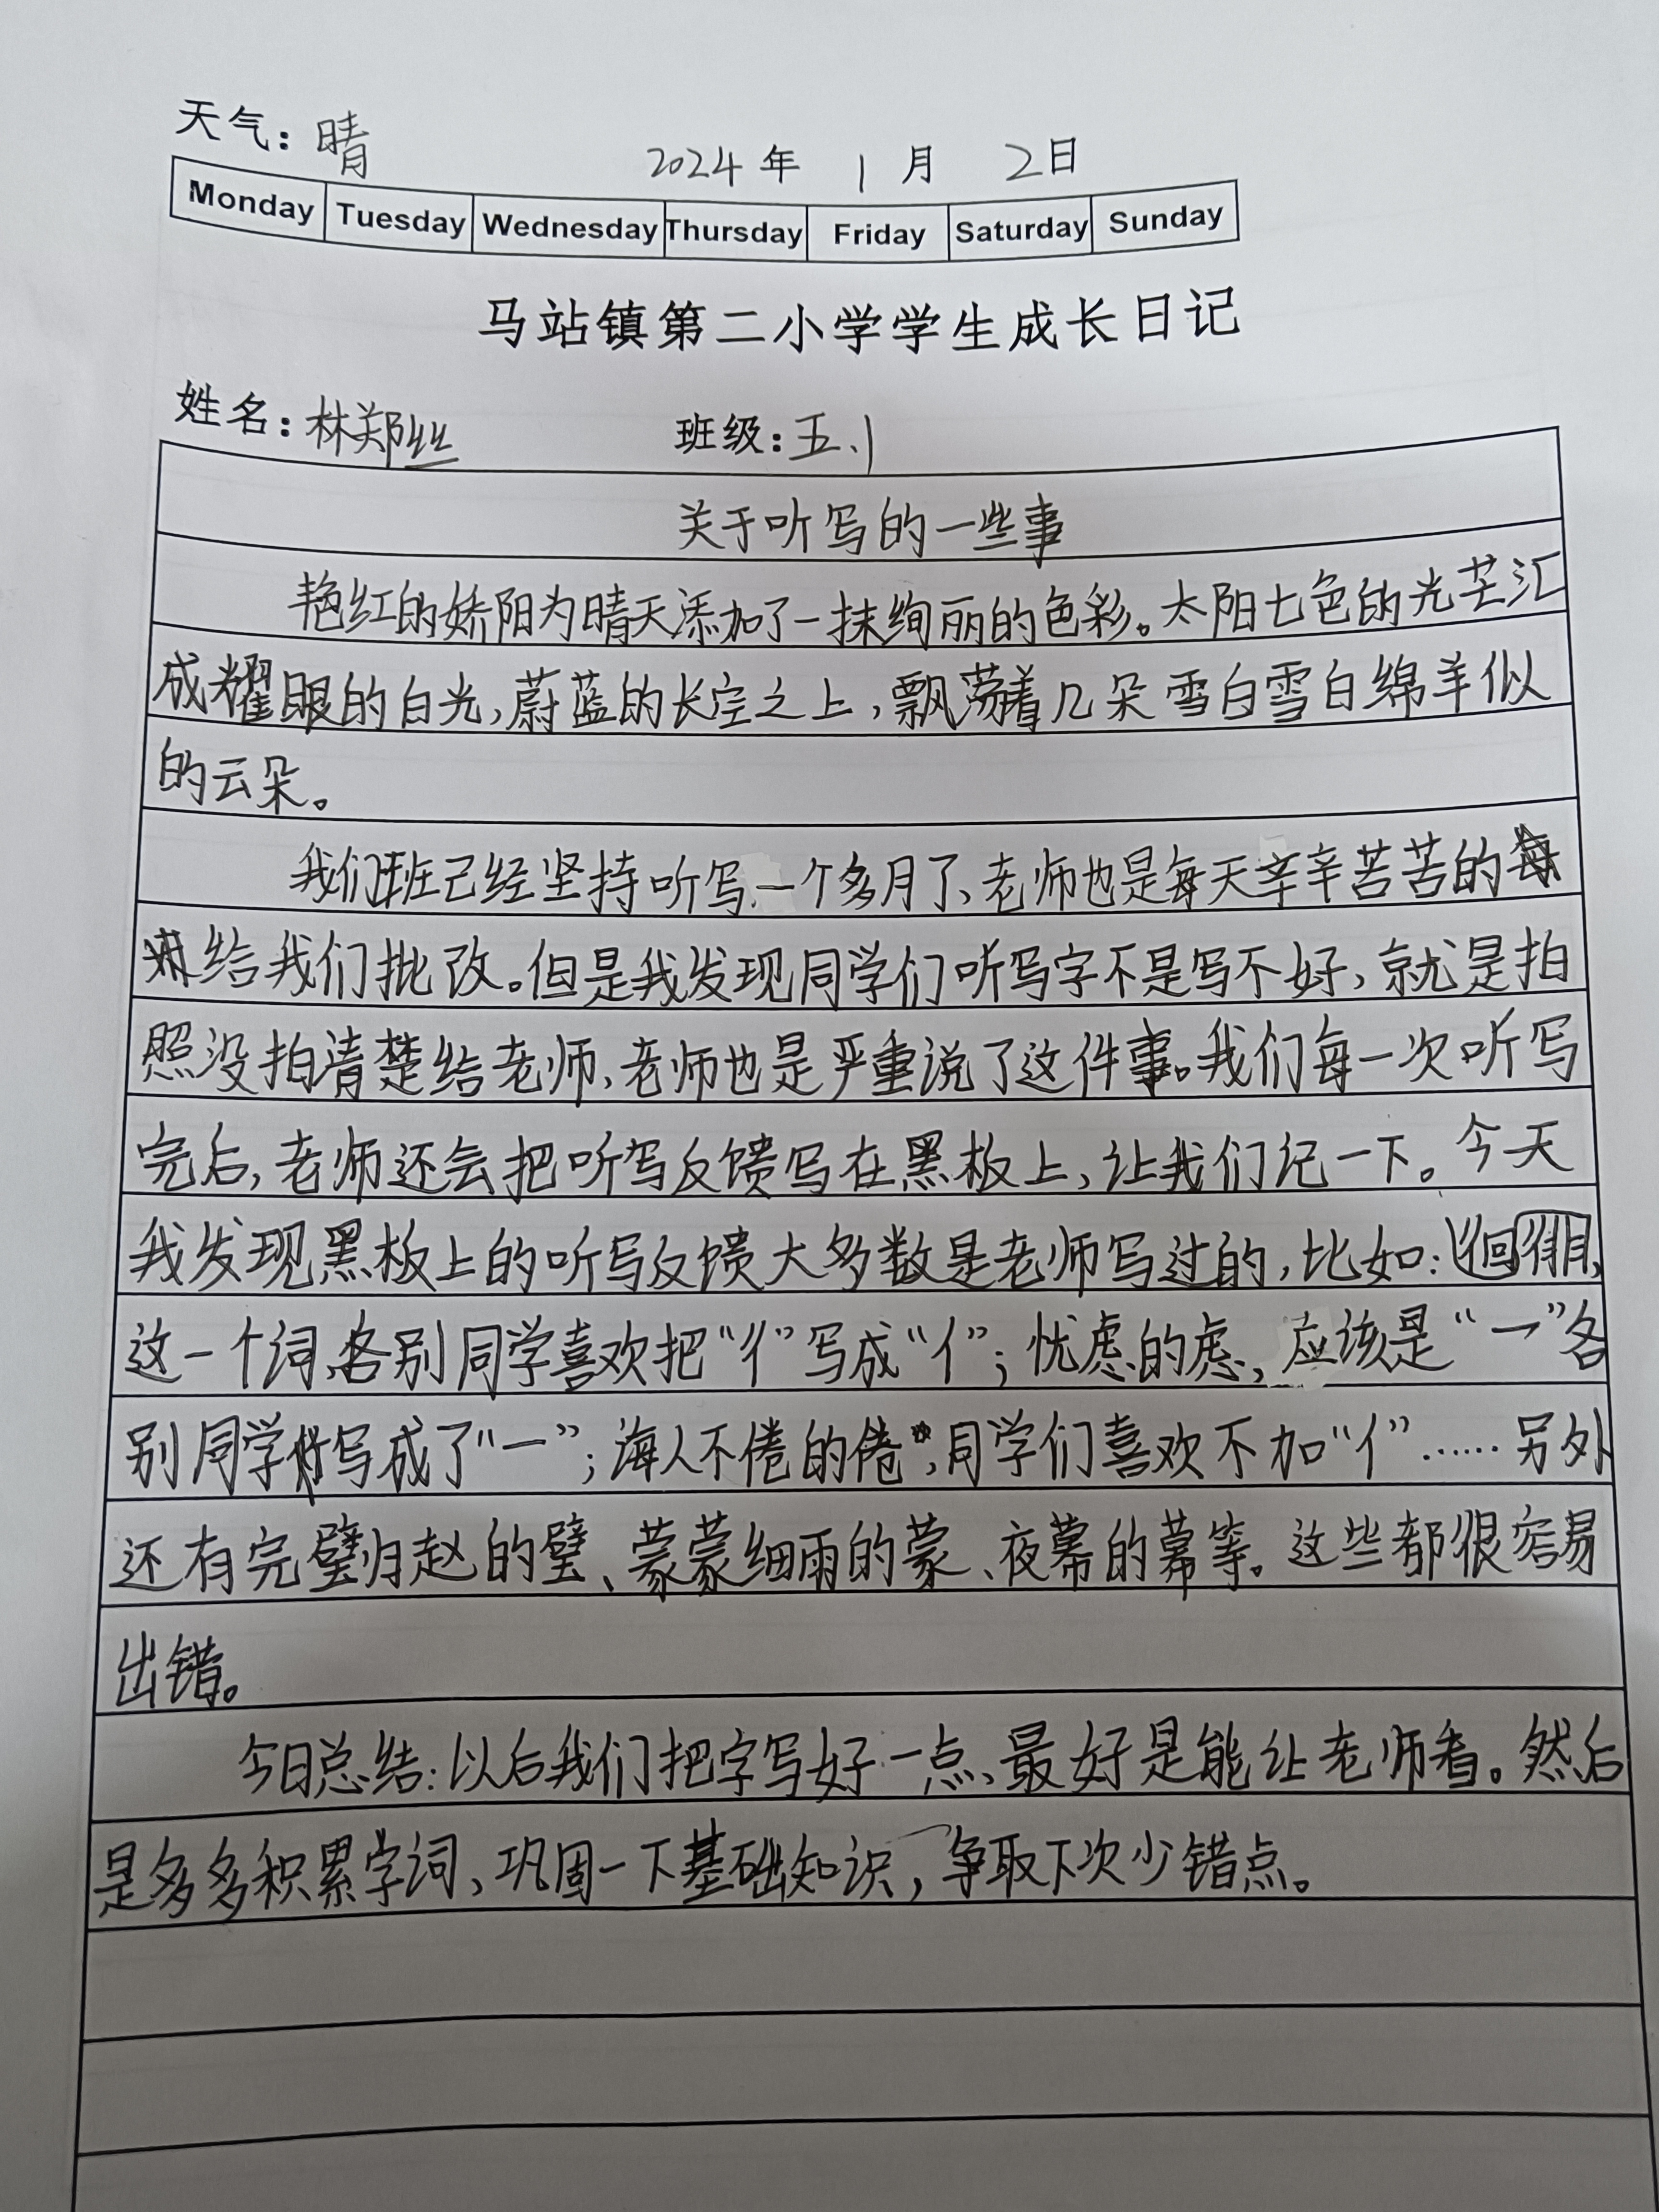 天气：晴
2024年 1月 2日
Monday Tuesday Wednesday Thursday Friday Saturday Sunday
马站镇第二小学学生成长日记
姓名：林郑丝 班级：五.1
关于听写的一些事
艳红的娇阳为晴天添加了一抹绚丽的色彩。太阳七色的光芒汇
成耀眼的白光，蔚蓝的长空之上，飘荡着几朵雪白雪白绵羊似
的云朵。
我们班已经坚持听写一个多月了、老师也是每天辛辛苦苦的
给我们批改。但是我发现同学们听写字不是写不好，就是拍
照没拍清楚给老师，老师也是严重说了这件事。我们每一次听写
完后，老师还会把听写反馈写在黑板上，让我们记一下。今天
我发现黑板上的听写反馈大多数是老师写过的，比如：
这一个词，各别同学喜欢把“彳”写成“亻”；忧虑的虑，应该是“㇖”各
别同学写成了“一”；海人不倦的倦，同学们喜欢不加“亻”……另外
还有完璧归赵的璧、蒙蒙细雨的蒙、夜幕的幕等。这些都很容易
出错。
今日总结：以后我们把字写好一点、最好是能让老师看。然后
是多多积累字词、巩固一下基础知识，争取下次少错点。